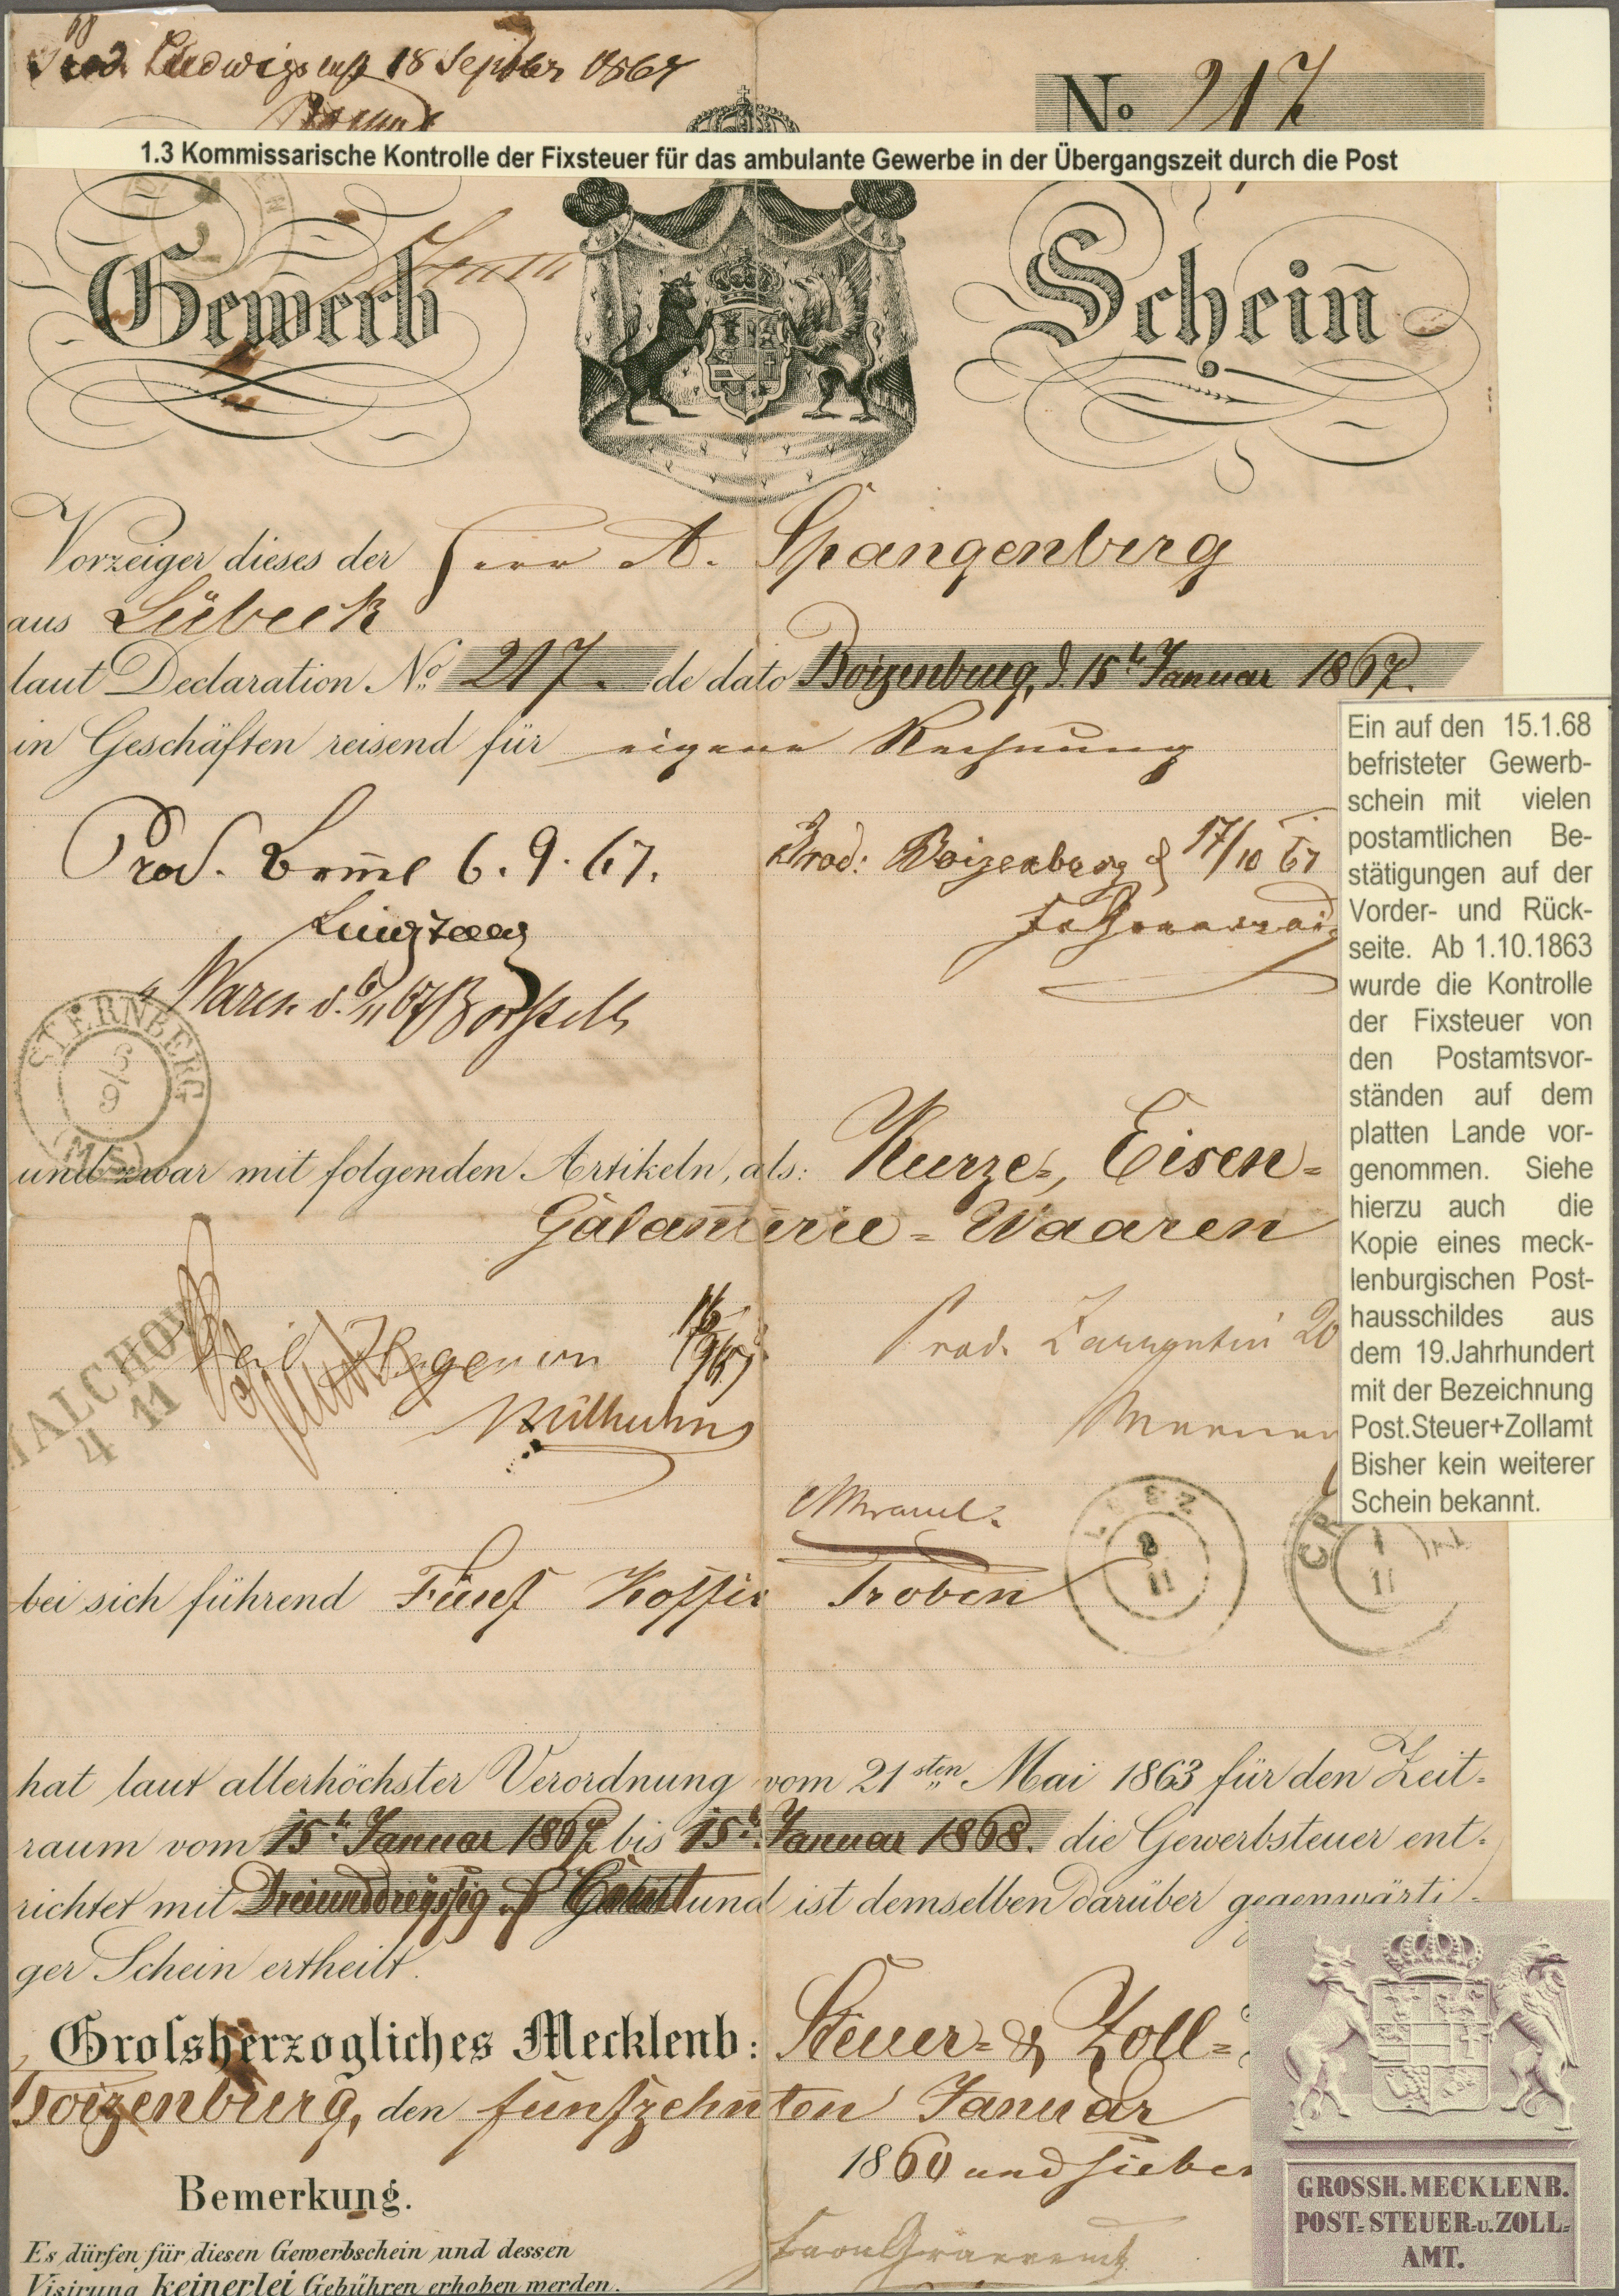 Prod. Ludwigslust 18 Septbr 1867
No 217
1.3 Kommissarische Kontrolle der Fixsteuer für das ambulante Gewerbe in der Übergangszeit durch die Post
Gewerb Schein
Vorzeiger dieses der Herr A. Spangenberg
aus Lübeck
laut Declaration No. 217. de dato Boizenburg, d. 15t Januar 1867.
in Geschäften reisend für eigene Rechnung
Prod. 6. 9. 67.
Prod: Boizenburg d 17/10 67
Waren d. 67
STERNBERG
6/9
(M.S)
und zwar mit folgenden Artikeln, als: Kurze-, Eisen-
Galanterie-Waaren
Hagenow
Prod. Zarrentin 20
MALCHOW
4 11
bei sich führend Fünf Koffer Proben
LEEZ
11
CR
1
11
hat laut allerhöchster Verordnung vom 21sten Mai 1863 für den Zeit-
raum vom 15t Januar 1867 bis 15t Januar 1868. die Gewerbsteuer ent-
richtet mit Dreiunddreyssig und ist demselben darüber gegenwärti-
ger Schein ertheilt.
Grossherzogliches Mecklenb: Steuer- & Zoll-
Boizenburg, den funfzehnten Januar
1860 und sieben
Bemerkung.
Es dürfen für diesen Gewerbschein und dessen
Visirung keinerlei Gebühren erhoben werden.
Ein auf den 15.1.68
befristeter Gewerb-
schein mit vielen
postamtlichen Be-
stätigungen auf der
Vorder- und Rück-
seite. Ab 1.10.1863
wurde die Kontrolle
der Fixsteuer von
den Postamtsvor-
ständen auf dem
platten Lande vor-
genommen. Siehe
hierzu auch die
Kopie eines meck-
lenburgischen Post-
hausschildes aus
dem 19.Jahrhundert
mit der Bezeichnung
Post.Steuer+Zollamt
Bisher kein weiterer
Schein bekannt.
GROSSH. MECKLENB.
POST- STEUER-u. ZOLL-
AMT.